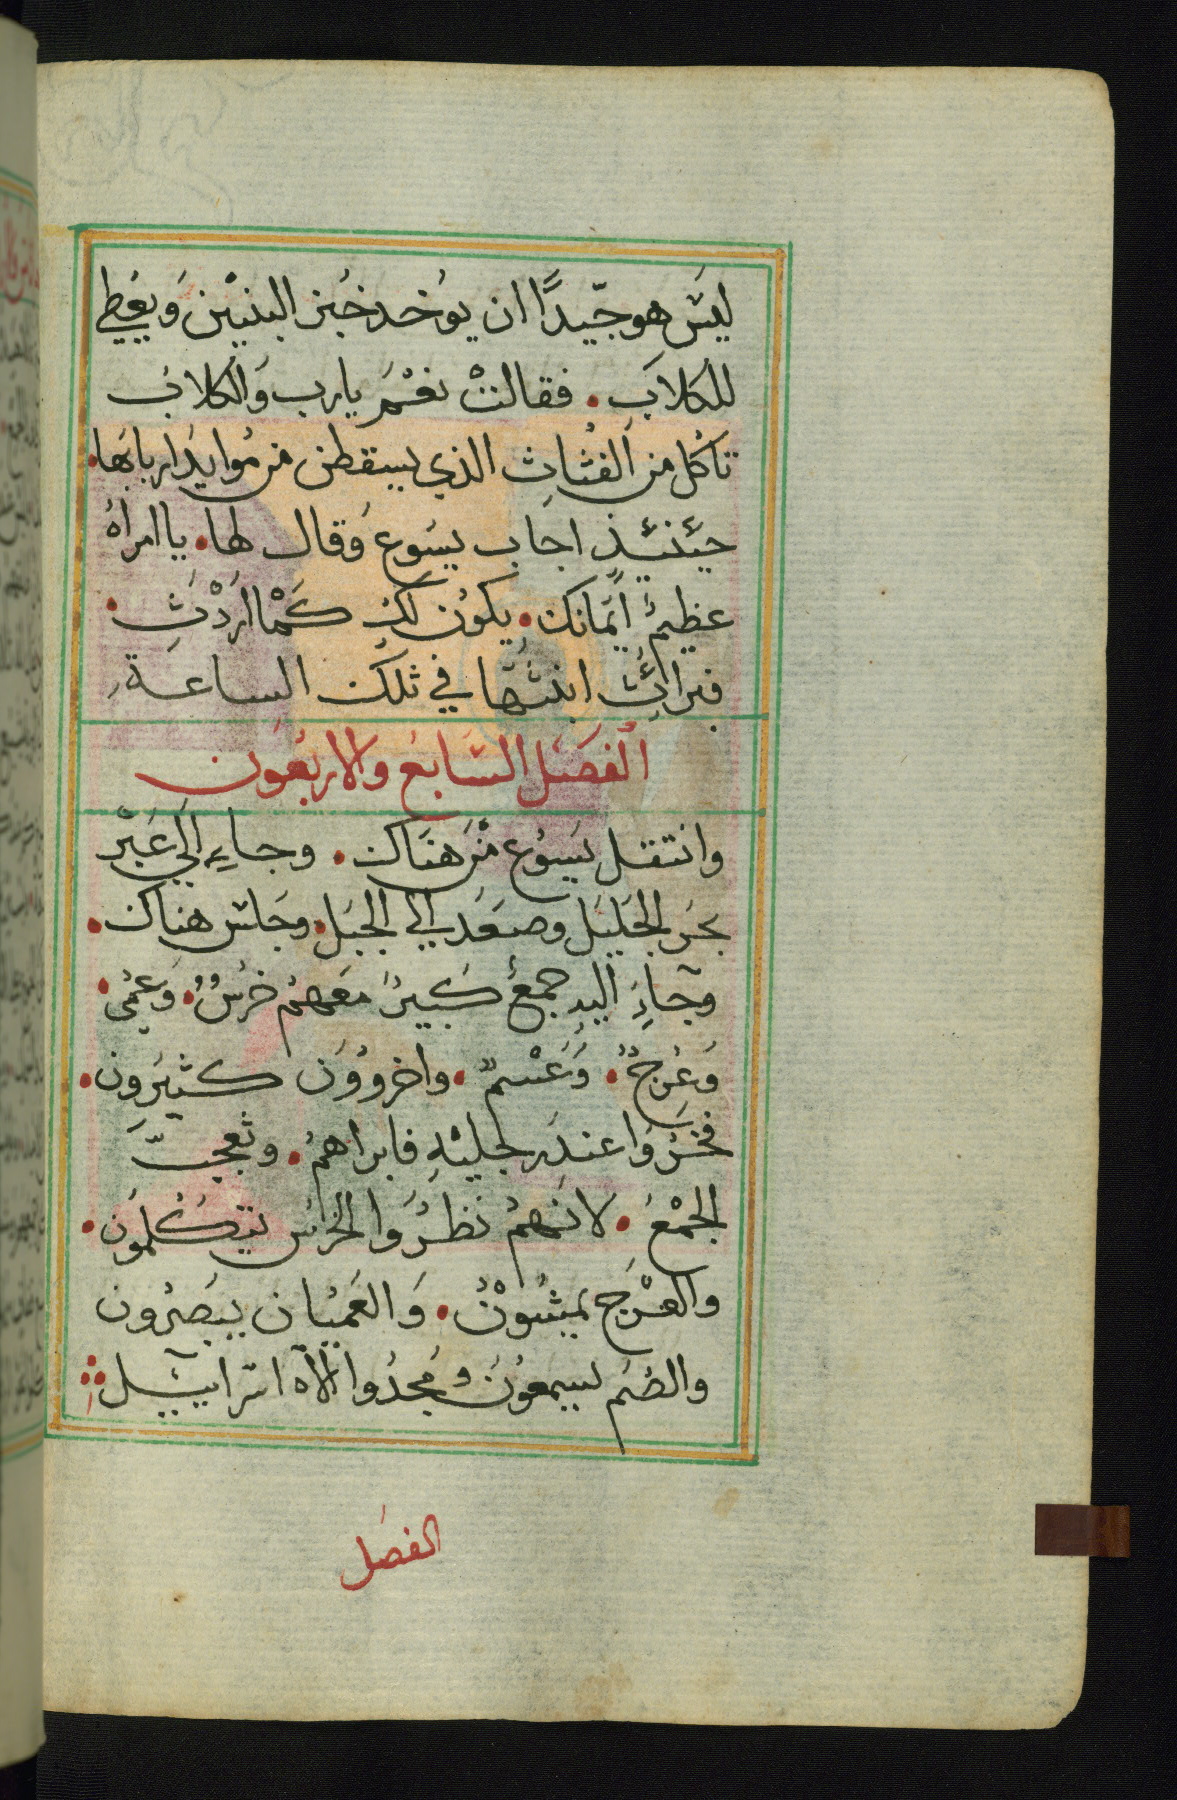 ليس هو جّيدًا ان يوُخد خبُز البنيْن وَيعُطي
للكلاَبِ. فقالتْ نعْمَ يارب وَالكلابُ
تاكُل من الفُتاتِ الذي يسقطن من مُوايدَ اربابَها.
حيَنئيذٍ اجَاب يسَوع وَقال لها. يا امراهْ
عظيمُ ايَمانك. يكوُن لكِ كمْا ارَدْتِ.
فبراتْ ابنتُها في تلكَ الساعَة
الفصَل السَابَع والاربعَون
وانتقل يَسوُع منْ هنَاك. وجاءِ الَي عَبْر
بحرَ الجَليَل وصعَد الي الجبَل. وجَلس هناك.
وجاءِ اليهِ جمعُ كَبيرُ معَهمُ خرسُ. وَعمُي.
وَعرُجُ. وَعَسمُ. واخروَون كثيَرون.
فخَرُوا عند رجليْهِ فابراهمُ. وتعجّبَ
الجمْعُ. لانَهمُ نَظرُوَا الخرسُ يتكَلموُن.
والعرْجَ يمشُوْنُ. وَالعَميُان يبَصرُون
والصُم يسمعوُنَ ومُجدُوا الآه اسراييَل
الفصَل